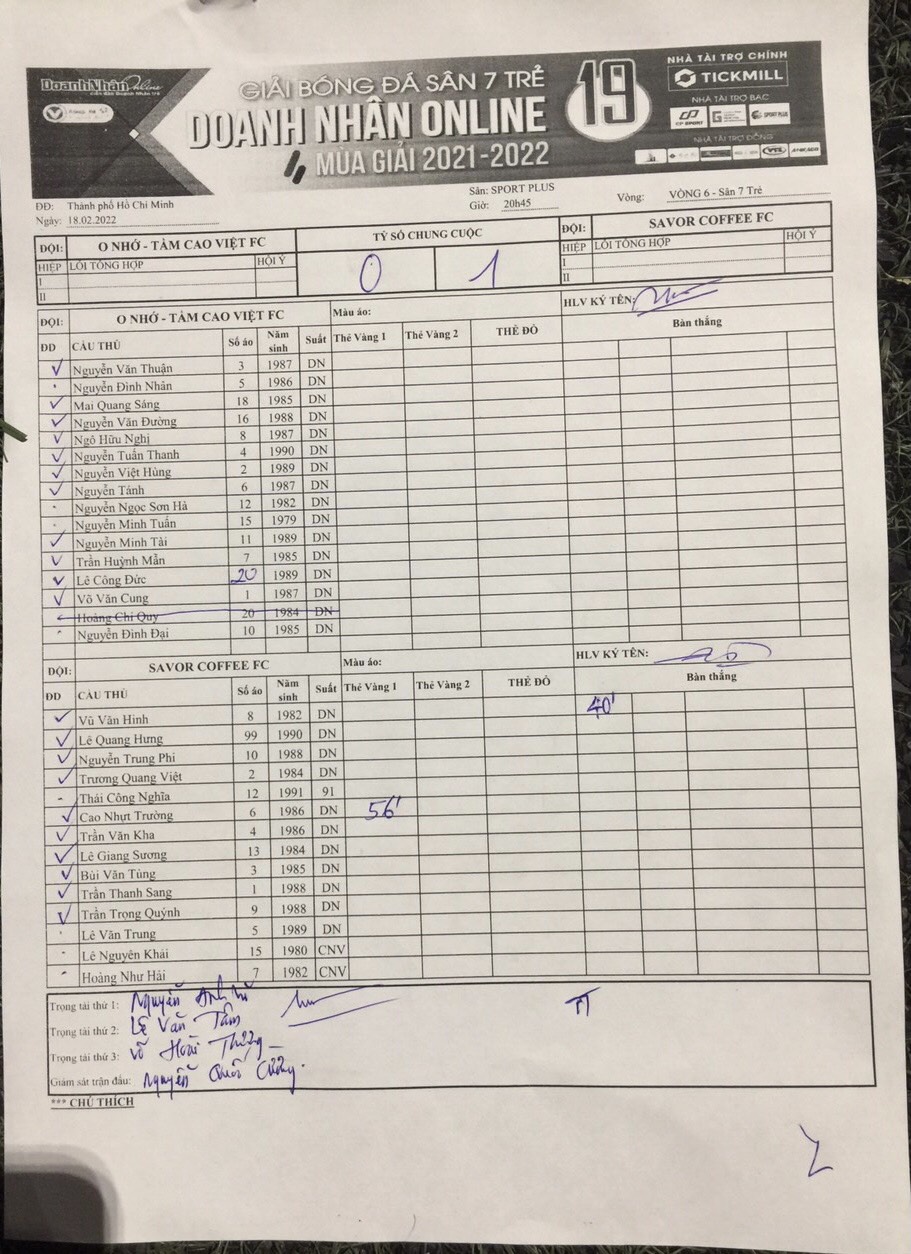 DoanhNhân Online
GIẢI BÓNG ĐÁ SÂN 7 TRẺ
DOANH NHÂN ONLINE
MÙA GIẢI 2021-2022
19
NHÀ TÀI TRỢ CHÍNH
TICKMILL
NHÀ TÀI TRỢ BẠC
CP SPORT
SPORT PLUS
NHÀ TÀI TRỢ ĐỒNG
ĐĐ: Thành phố Hồ Chí Minh
Ngày: 18.02.2022
Sân: SPORT PLUS
Giờ: 20h45
Vòng: VÒNG 6 - Sân 7 Trẻ
ĐỘI: O NHỚ - TẦM CAO VIỆT FC TỶ SỐ CHUNG CUỘC ĐỘI: SAVOR COFFEE FC
HIỆP LỖI TỔNG HỢP HỘI Ý 0 1 HIỆP LỖI TỔNG HỢP HỘI Ý
I I
II II
ĐỘI: O NHỚ - TẦM CAO VIỆT FC Màu áo: HLV KÝ TÊN:
ĐD CẦU THỦ Số áo Năm sinh Suất Thẻ Vàng 1 Thẻ Vàng 2 THẺ ĐỎ Bàn thắng
✓ Nguyễn Văn Thuận 3 1987 DN
Nguyễn Đình Nhân 5 1986 DN
✓ Mai Quang Sáng 18 1985 DN
✓ Nguyễn Văn Đường 16 1988 DN
✓ Ngô Hữu Nghị 8 1987 DN
✓ Nguyễn Tuấn Thanh 4 1990 DN
✓ Nguyễn Việt Hùng 2 1989 DN
✓ Nguyễn Tánh 6 1987 DN
Nguyễn Ngọc Sơn Hà 12 1982 DN
Nguyễn Minh Tuấn 15 1979 DN
✓ Nguyễn Minh Tài 11 1989 DN
✓ Trần Huỳnh Mẫn 7 1985 DN
✓ Lê Công Đức 20 1989 DN
✓ Võ Văn Cung 1 1987 DN
Hoàng Chí Quy 20 1984 DN
Nguyễn Đình Đại 10 1985 DN
ĐỘI: SAVOR COFFEE FC Màu áo: HLV KÝ TÊN:
ĐD CẦU THỦ Số áo Năm sinh Suất Thẻ Vàng 1 Thẻ Vàng 2 THẺ ĐỎ Bàn thắng
✓ Vũ Văn Hinh 8 1982 DN 40'
✓ Lê Quang Hưng 99 1990 DN
✓ Nguyễn Trung Phi 10 1988 DN
✓ Trương Quang Việt 2 1984 DN
- Thái Công Nghĩa 12 1991 91
✓ Cao Nhựt Trường 6 1986 DN 56'
✓ Trần Văn Kha 4 1986 DN
✓ Lê Giang Sương 13 1984 DN
✓ Bùi Văn Tùng 3 1985 DN
✓ Trần Thanh Sang 1 1988 DN
✓ Trần Trọng Quỳnh 9 1988 DN
Lê Văn Trung 5 1989 DN
Lê Nguyên Khải 15 1980 CNV
Hoàng Như Hải 7 1982 CNV
Trọng tài thứ 1: Nguyễn Anh
Trọng tài thứ 2: Lê Văn Tâm
Trọng tài thứ 3: Võ Hoài
Giám sát trận đấu: Nguyễn Quốc Cường
*** CHÚ THÍCH